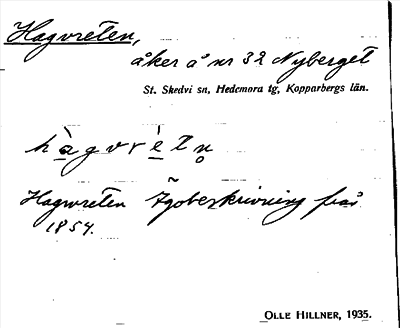 Hagvreten,
åker å nr 32 Nyberget
St. Skedvi sn, Hedemora tg, Kopparbergs län.
hàgvrètn̥
Hagvreten Ägobeskrivning från
1854.
OLLE HILLNER, 1935.